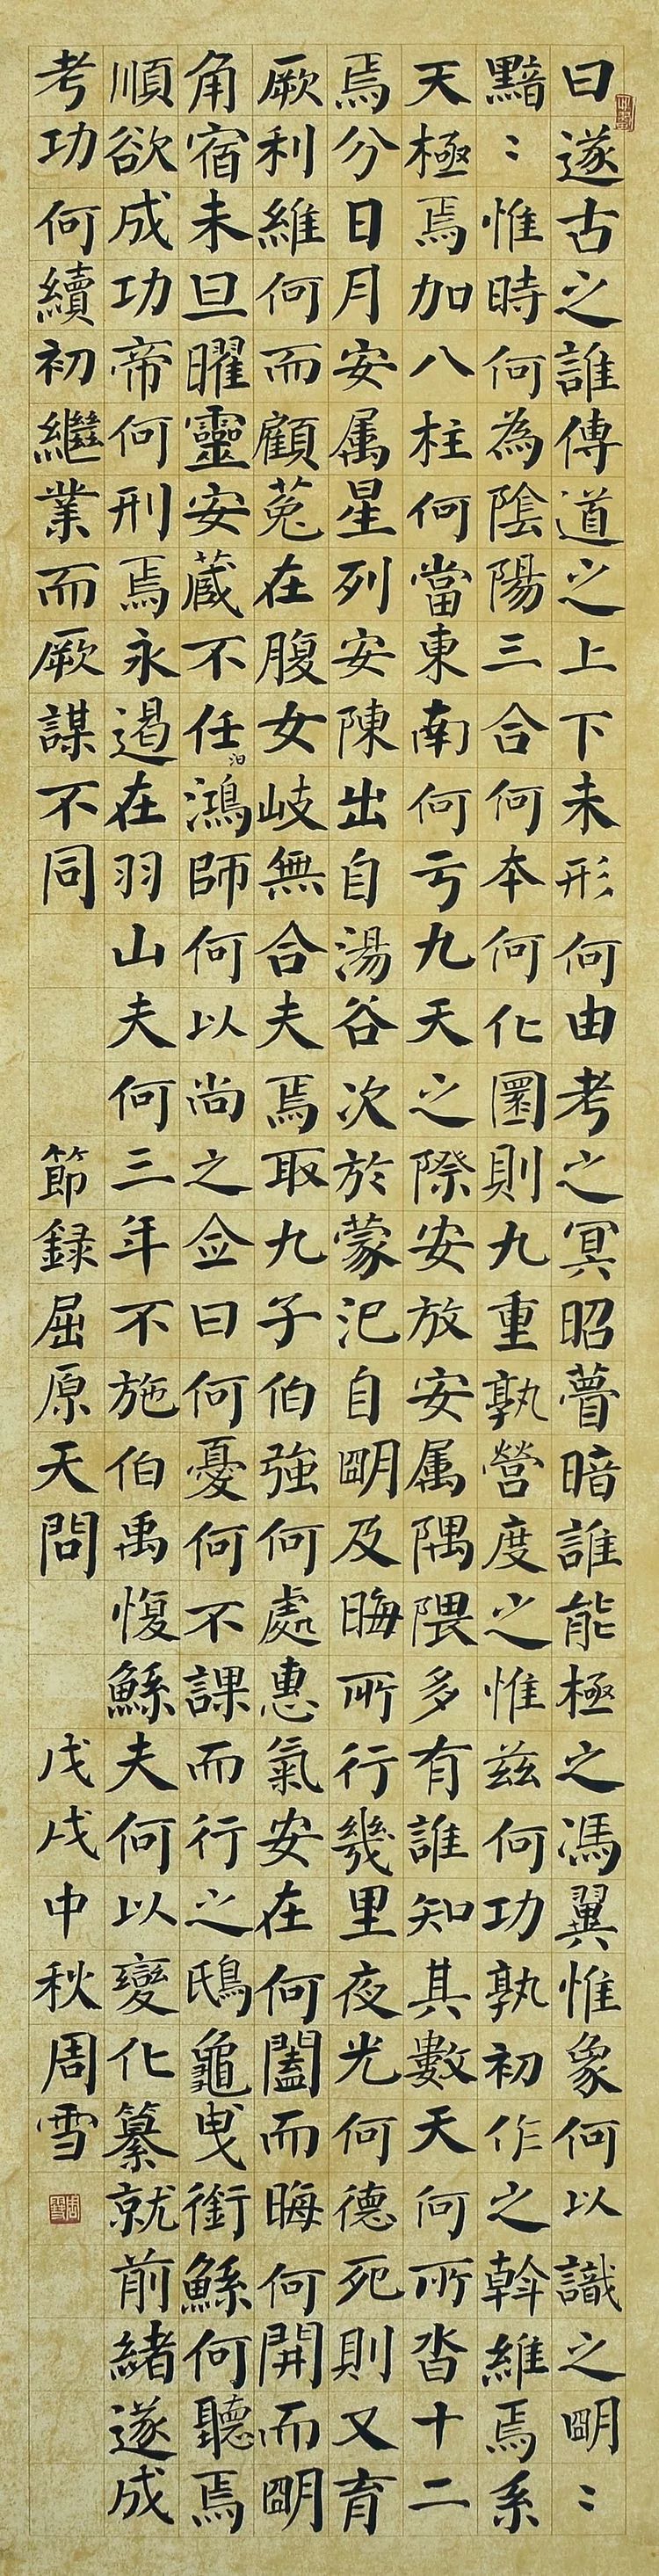 曰遂古之誰傳道之上下未形何由考之冥昭瞢暗誰能極之馮翼惟象何以識之朙〻
黯〻惟時何為陰陽三合何本何化圜則九重孰營度之惟兹何功孰初作之斡維焉系
天極焉加八柱何當東南何亏九天之際安放安属隅隈多有誰知其數天何所沓十二
焉分日月安属星列安陳出自湯谷次於蒙汜自朙及晦所行幾里夜光何德死則又育
厥利維何而顧菟在腹女岐無合夫焉取九子伯強何處惠氣安在何闔而晦何開而朙
角宿未旦曜靈安蔵不任汩鴻師何以尚之佥曰何憂何不課而行之鴟龜曳銜鯀何聽焉
順欲成功帝何刑焉永遏在羽山夫何三年不施伯禹愎鯀夫何以變化纂就前緒遂成
考功何續初繼業而厥謀不同 節録屈原天問 戊戌中秋周雪